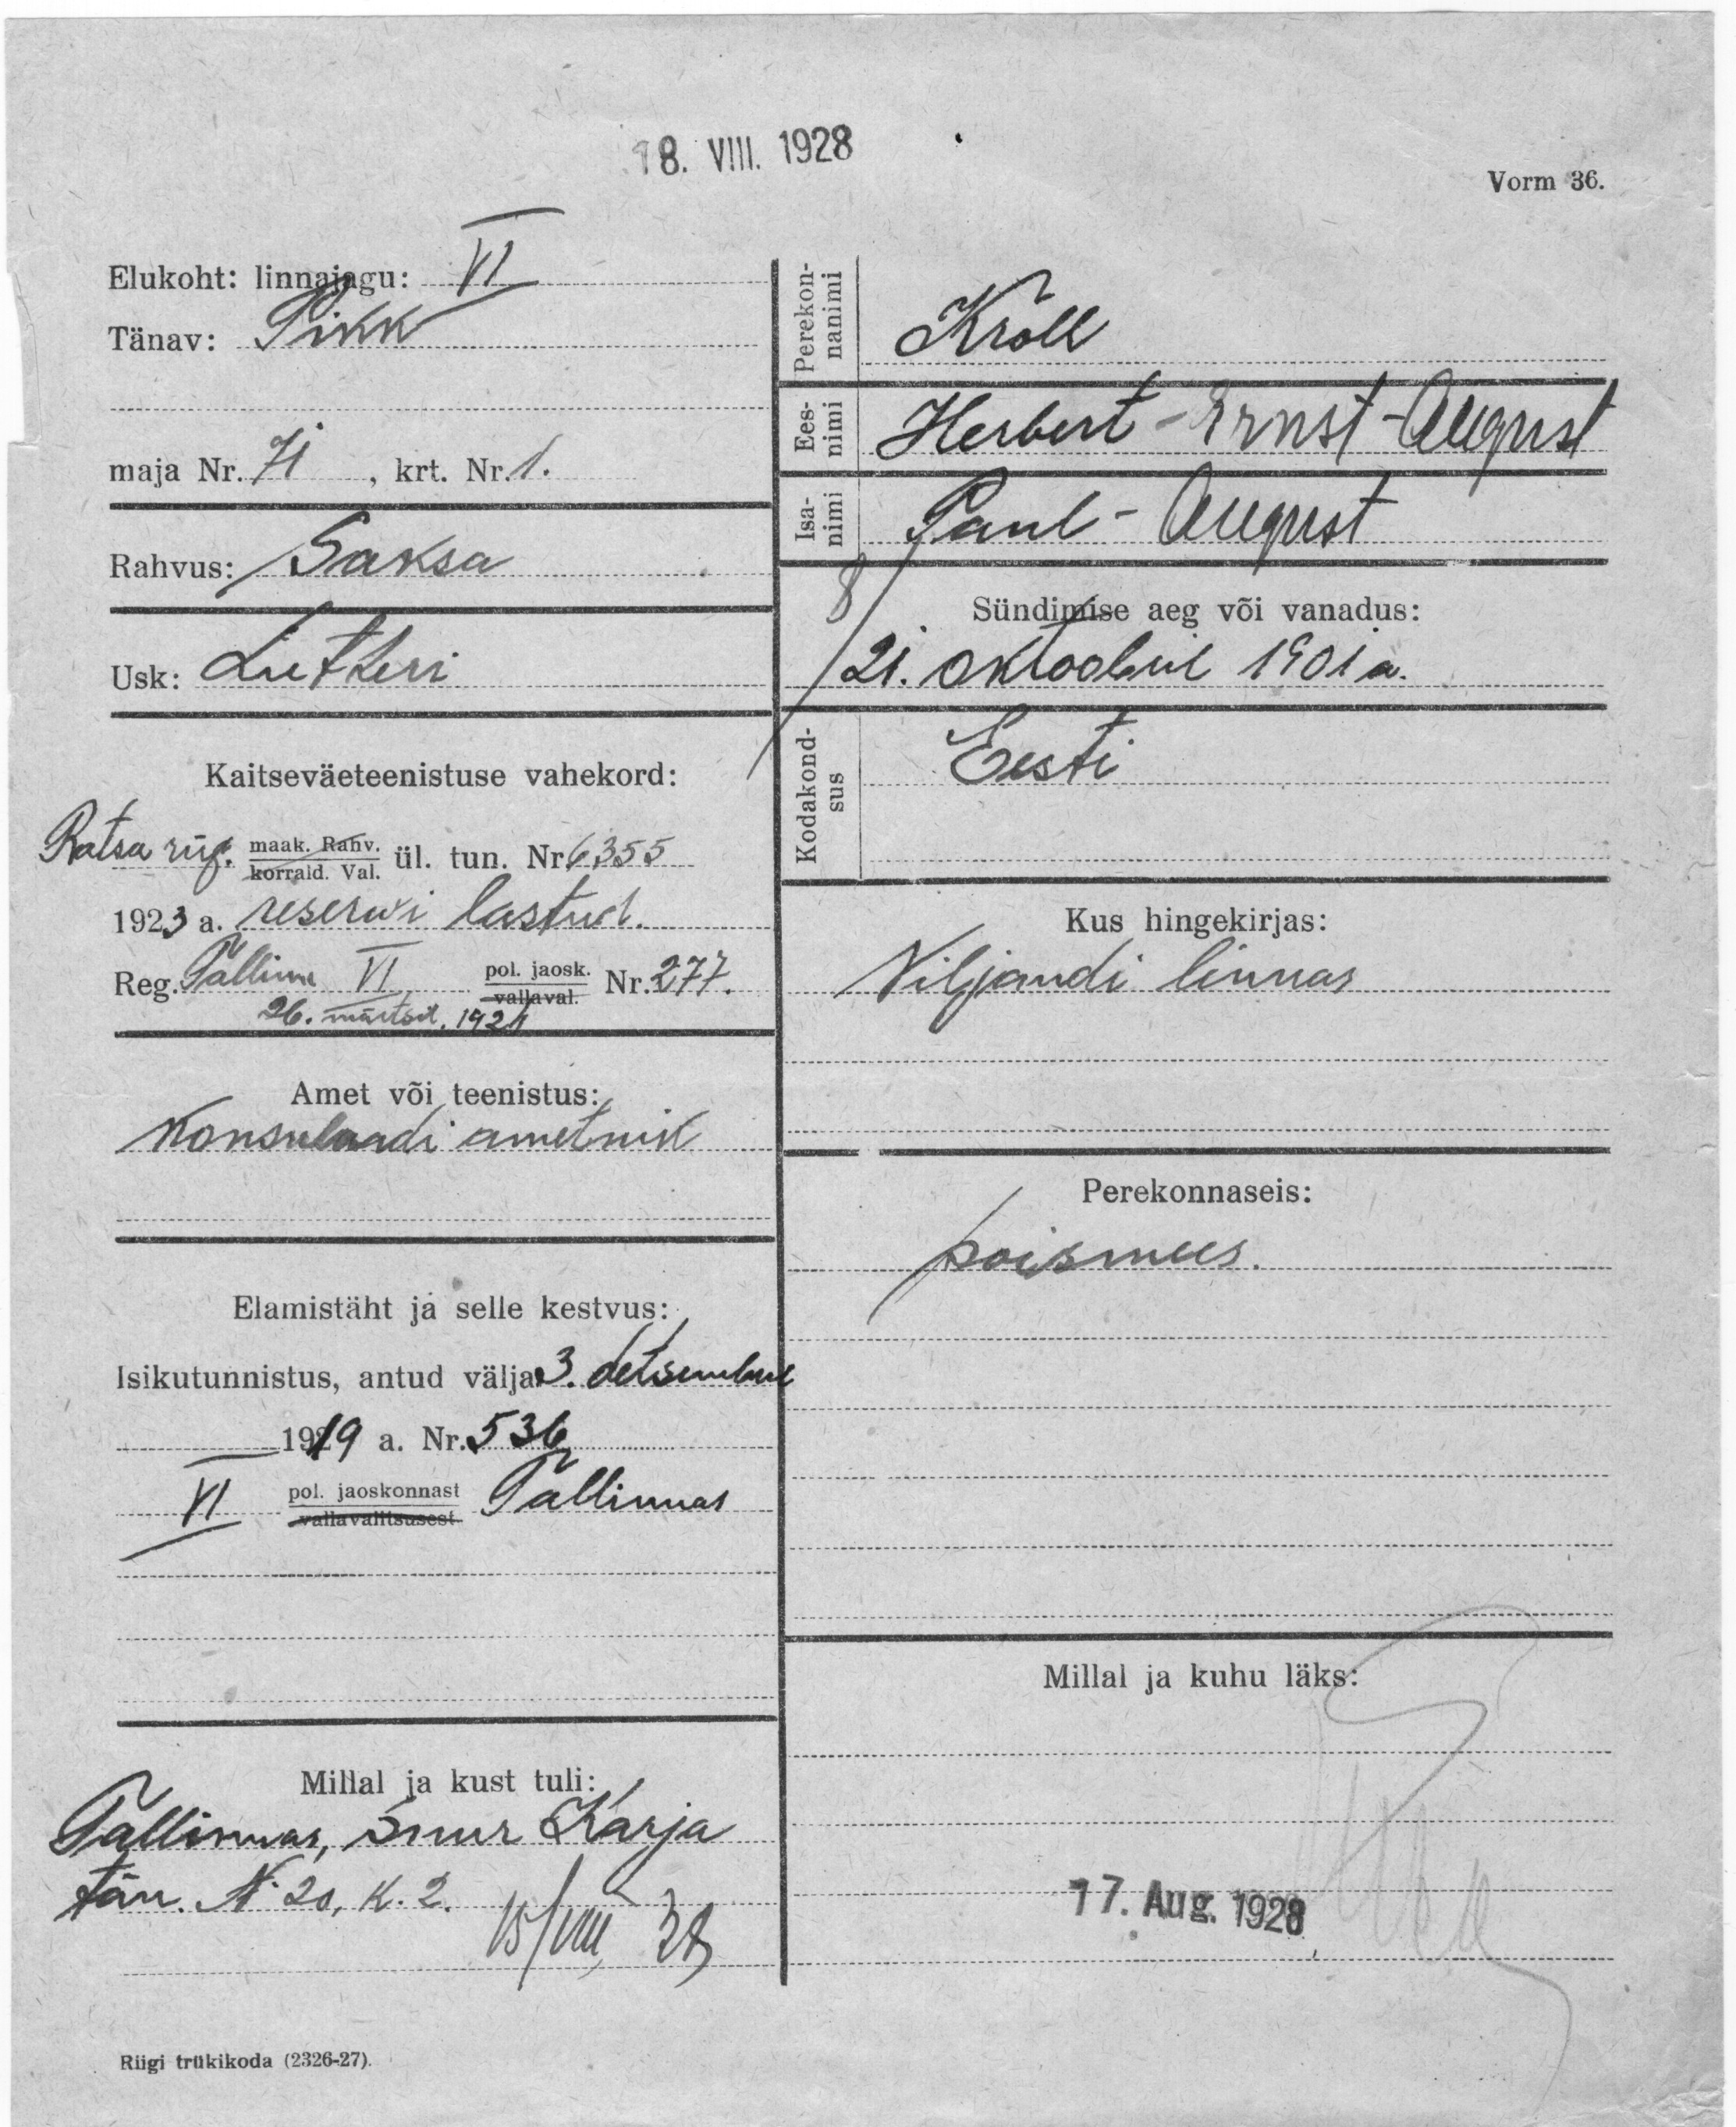 18. VIII. 1928
Vorm 36.
Elukoht: linnajagu: VI
Tänav: Pikk
maja Nr. 71, krt. Nr. 1.
Rahvus: Saksa
Usk: Lutteri
Kaitseväeteenistuse vahekord:
Ratsa rüg. maak. Rahv. korrald. Val. ül. tun. Nr 6355
1923 a. reservi lastud.
Reg. Tallinna VI pol. jaosk. vallaval. Nr. 277.
26. märtsil. 1924
Amet või teenistus:
Konsulaadi ametnik
Elamistäht ja selle kestvus:
Isikutunnistus, antud välja 3. detsembril
1919 a. Nr. 536
VI pol. jaoskonnast vallavalitsusest Tallinnas
Millal ja kust tuli:
Tallinnas, Suur Karja
tän. N. 20, k. 2.
15/VIII 28
Riigi trükikoda (2326-27).
Perekon-
nanimi
Kroll
Ees-
nimi
Herbert-Ernst-August
Isa-
nimi
Paul-August
8
Sündimise aeg või vanadus:
21. oktoobril 1901 a.
Kodakond-
sus
Eesti
Kus hingekirjas:
Viljandi linnas
Perekonnaseis:
poismees.
Millal ja kuhu läks:
17. Aug. 1928